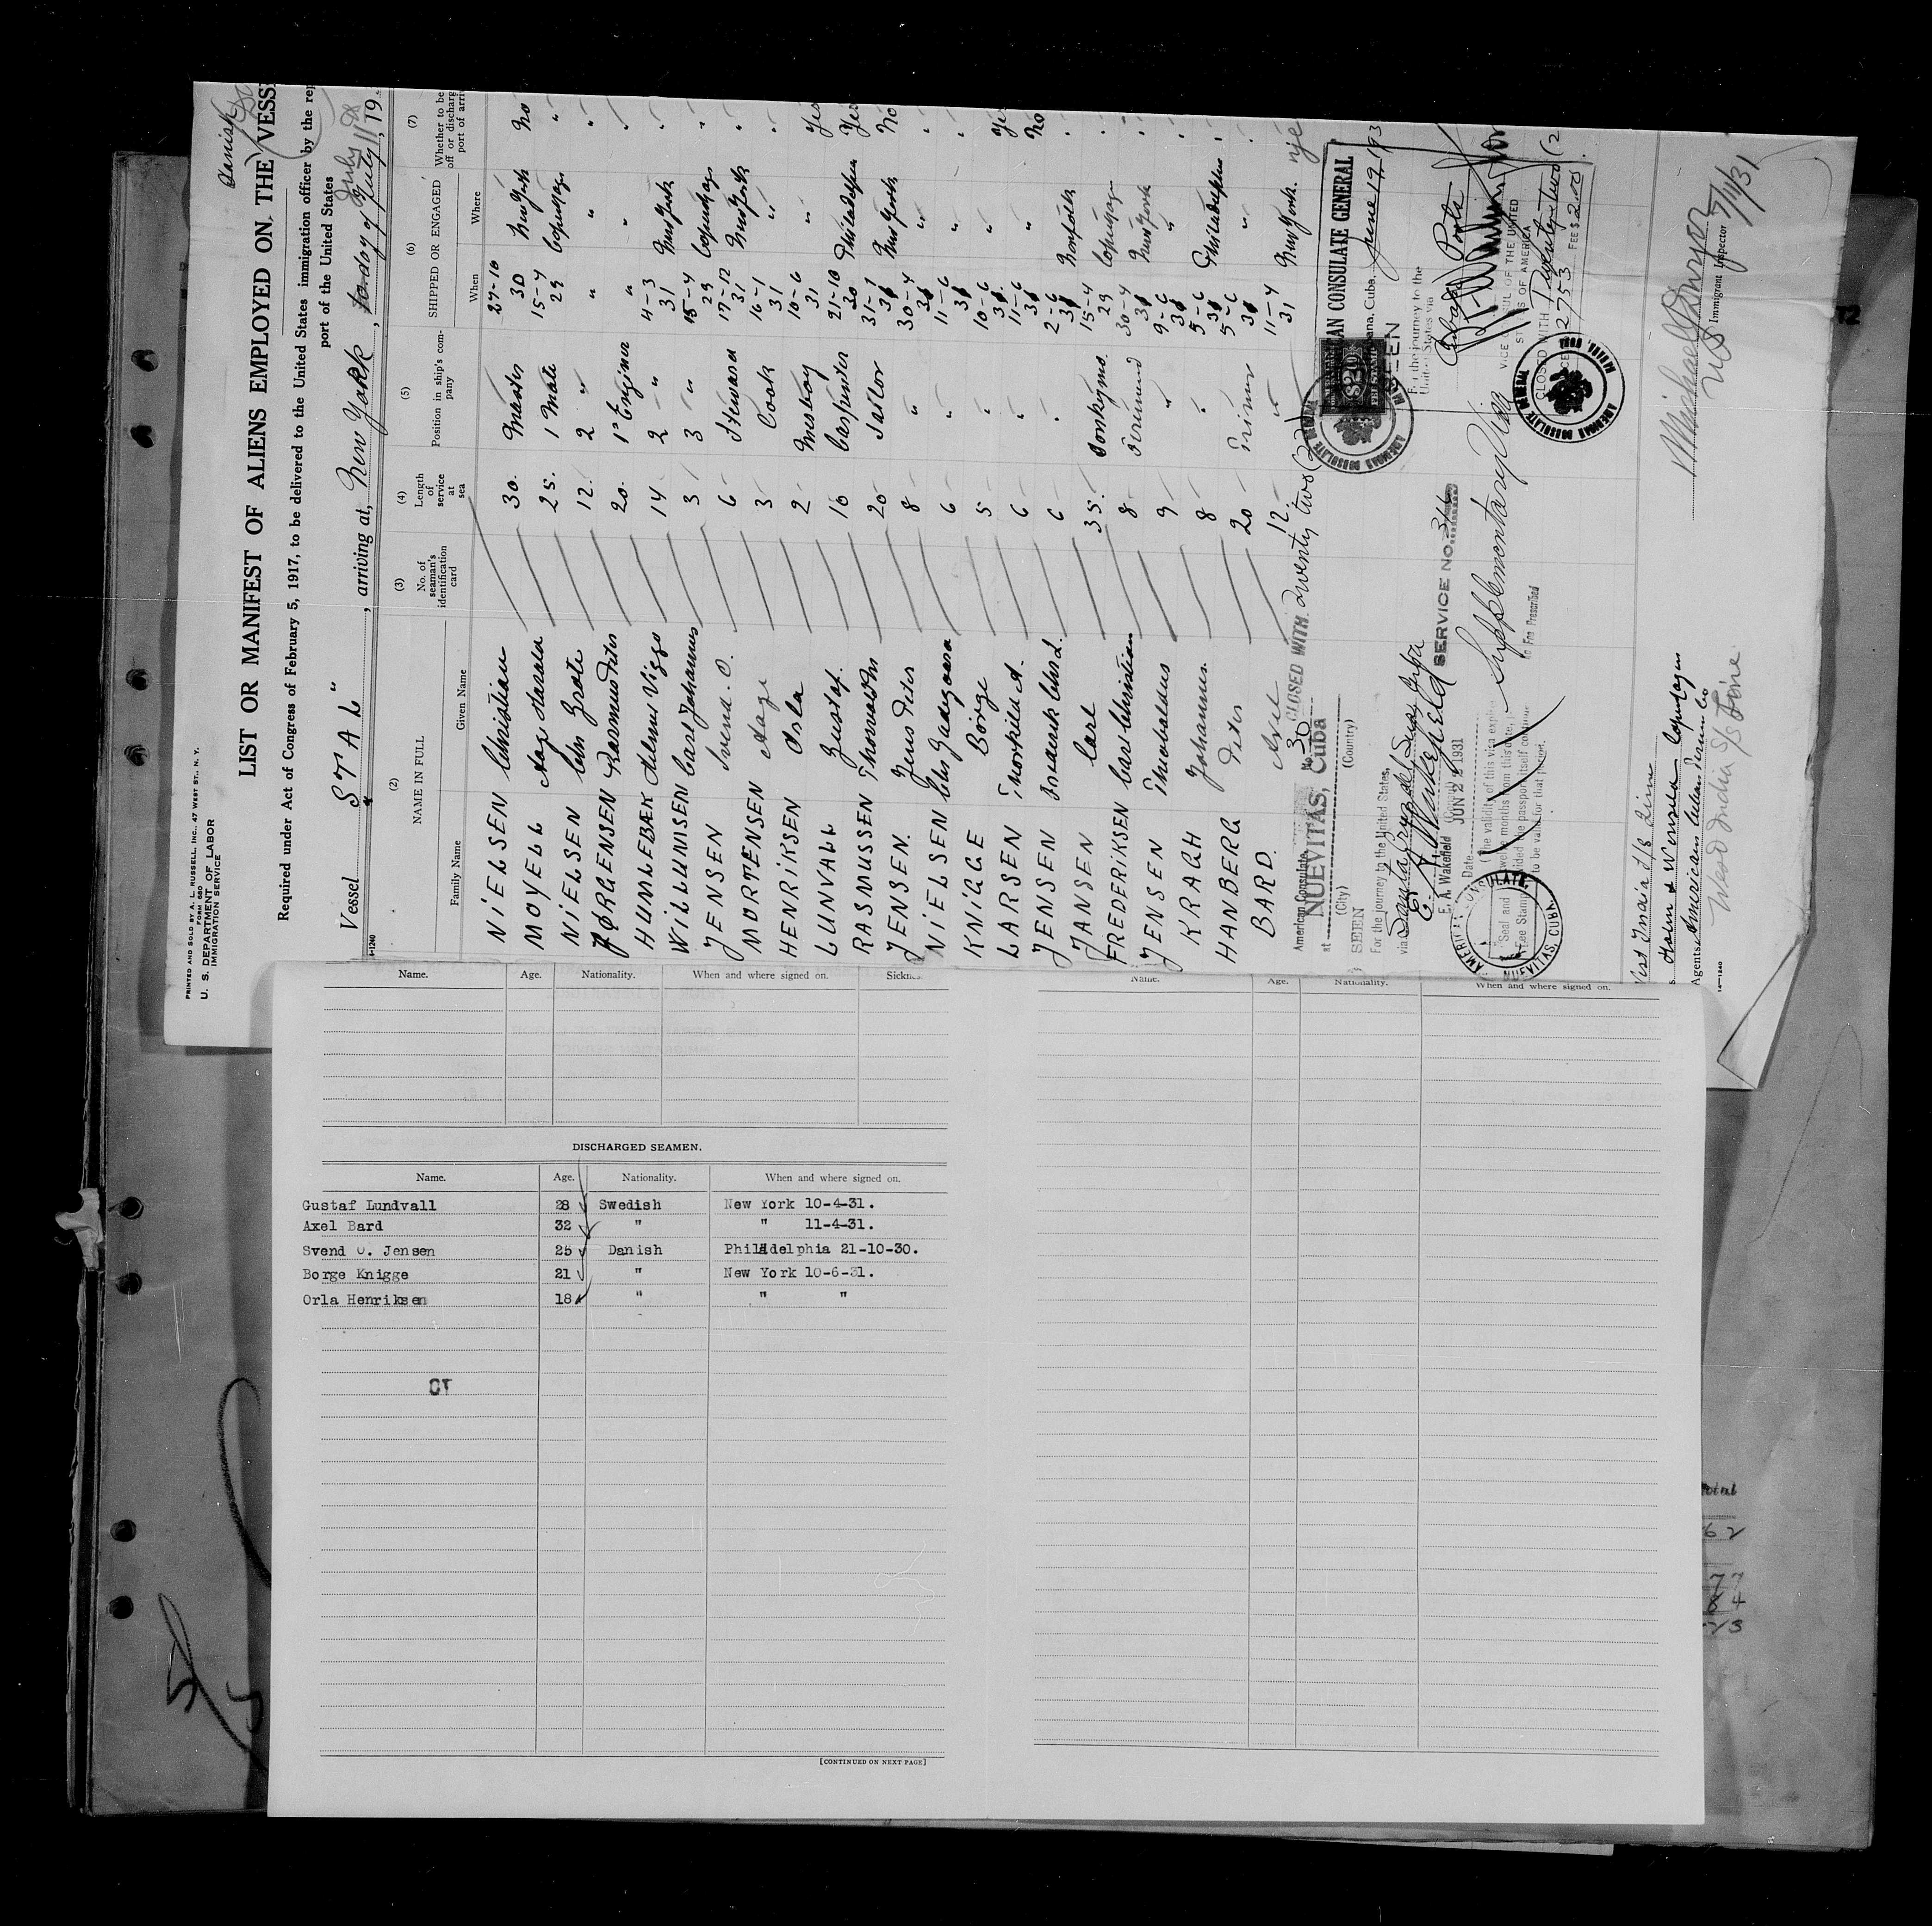 PRINTED AND SOLD BY A. L. RUSSELL, INC., 47 WEST ST., N. Y.
FORM 680
U. S. DEPARTMENT OF LABOR
IMMIGRATION SERVICE
Danish
LIST OR MANIFEST OF ALIENS EMPLOYED ON THE VESSE
Required under Act of Congress of February 5, 1917, to be delivered to the United States immigration officer by the rep
port of the United States
Vessel "STAL", arriving at, New York, July 11th, 19
(2) (3) (4) (5) (6) (7)
NAME IN FULL
Family Name Given Name
No. of seaman's identification card
Length of service at sea
Position in ship's company
SHIPPED OR ENGAGED
When Where
Whether to be off or discharg port of arri
NIELSEN Christian 30 Master 27-10 30 New York No
MOYELL Aage Harald 25 1 Mate 15-4 29 Copenhage "
NIELSEN Chr Grate 12 2 " " " "
JØRGENSEN Rasmus Peter 20 1st Enginer " "
HUMLEBÆK Helmer Viggo 14 2 " 4-3 31 New York
WILLUMSEN Carl Johannes 3 3 " 15-4 29 Copenhage "
JENSEN Svend. O. 6 Steward 17-12 31 New York "
MORTENSEN Aage 3 Cook 16-1 31 "
HENRIKSEN Orla 2 Messboy 10-6 31 " Yes
LUNVALL Gustaf. 10 Carpenter 21-10 30 Philadelphia Yes
RASMUSSEN Thorvald 20 Sailor 31-1 31 New York No
JENSEN. Jens Peter 8 " 30-4 31 " "
NIELSEN Chr 6 " 11-6 31 " "
KNIGGE Börge 5 " 10-6 31 " Yes
LARSEN Thorkild A. 6 " 11-6 31 " No
JENSEN Chr L. 6 " 2-6 31 Norfolk "
JANSEN Carl 35. Donkeyma. 15-4 29 Copenhage "
FREDERIKSEN Carl Christian 8 30-4 31 New York "
JENSEN Theobaldus 9 " 9-6 31 " "
KRAGH Johannes. 8 " 5-6 31 Philadelphia "
HANBERG Peter 20 Trimer 5-6 31 " "
BARD. Axel 12. " 11-4 31 New York.
American Consulate, No. 30 CLOSED WITH twenty two (22)
at NUEVITAS, Cuba
(City) (Country)
SEEN
For the journey to the United States,
via
E. A. Wakefield
E. A. Wakefield
Date JUN 22 1931
SERVICE NO. 34
Supplementary Visa
No Fee Prescribed
(The validity of this visa expires
twelve months from this date,
provided the passport itself continue
to be valid for that period.
Seal and
Fee Stamp
AMERICAN CONSULATE, NUEVITAS, CUBA.
AMERICAN CONSULATE GENERAL
Havana, Cuba. June 19, 193
SEEN
For the journey to the
United States via
VICE CONSUL OF THE UNITED
STATES OF AMERICA
CLOSED WITH Twenty two (2
SERVICE NO. 2753 FEE $2.00
AMERICAN CONSULATE GENERAL HABANA, CUBA
West India S/S Line
Holm & Wonsild Copenhagen
Agents,
14—1240
West India S/S Line.
Immigrant Inspector
7/11/31
Name. Age. Nationality. When and where signed on. Sickne
Name. Age. Nationality. When and where signed on.
DISCHARGED SEAMEN.
Name. Age. Nationality. When and where signed on.
Gustaf Lundvall 28 Swedish New York 10-4-31.
Axel Bard 32 " " 11-4-31.
Svend O. Jensen 25 Danish Philadelphia 21-10-30.
Borge Knigge 21 " New York 10-6-31.
Orla Henriksen 18 " " "
[CONTINUED ON NEXT PAGE]
Total
62
77